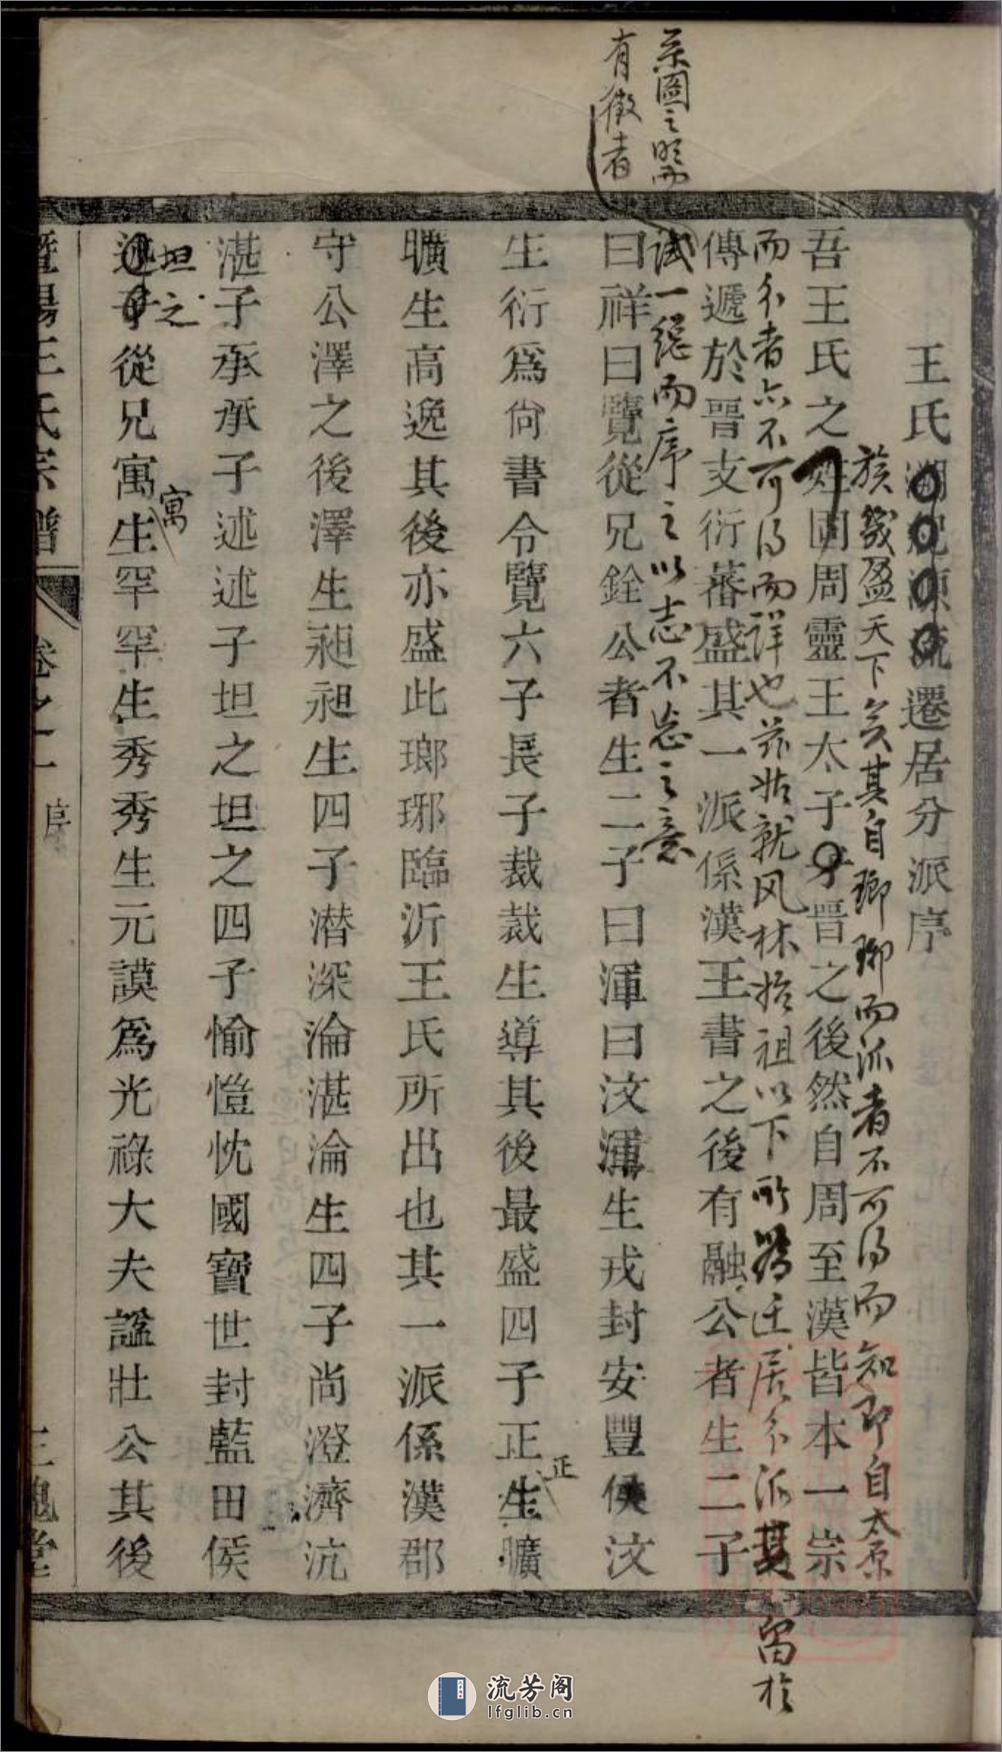 王氏溯宗源流遷居分派序
族幾盈天下矣其自瑯琊而派者不可得而知即自太原
吾王氏之姓国周靈王太子晋之後然自周至漢皆本一宗
而分者亦不可得而詳也兹姑就风林始祖以下所以遷居分派其留於
傳遞於晉支衍蕃盛其一派係漢王書之後有融公者生二子
系圖之
有徵者
試一總而序之以志不忘之意
曰祥曰覽從兄銓公者生二子曰渾曰汶渾生戎封安豐侯汶
生衍爲尙書令覽六子長子裁裁生導其後最盛四子正生曠
正
曠生高逸其後亦盛此瑯琊臨沂王氏所出也其一派係漢郡
守公澤之後澤生昶昶生四子潜深淪湛淪生四子尚澄濟沆
湛子承承子述述子坦之坦之四子愉愷忱國寶世封藍田侯
坦之
寓
述子從兄寓生罕罕生秀秀生元謨爲光祿大夫謚壯公其後
暨陽王氏宗譜
卷之一
序
三槐堂
流芳阁
lfglib.cn